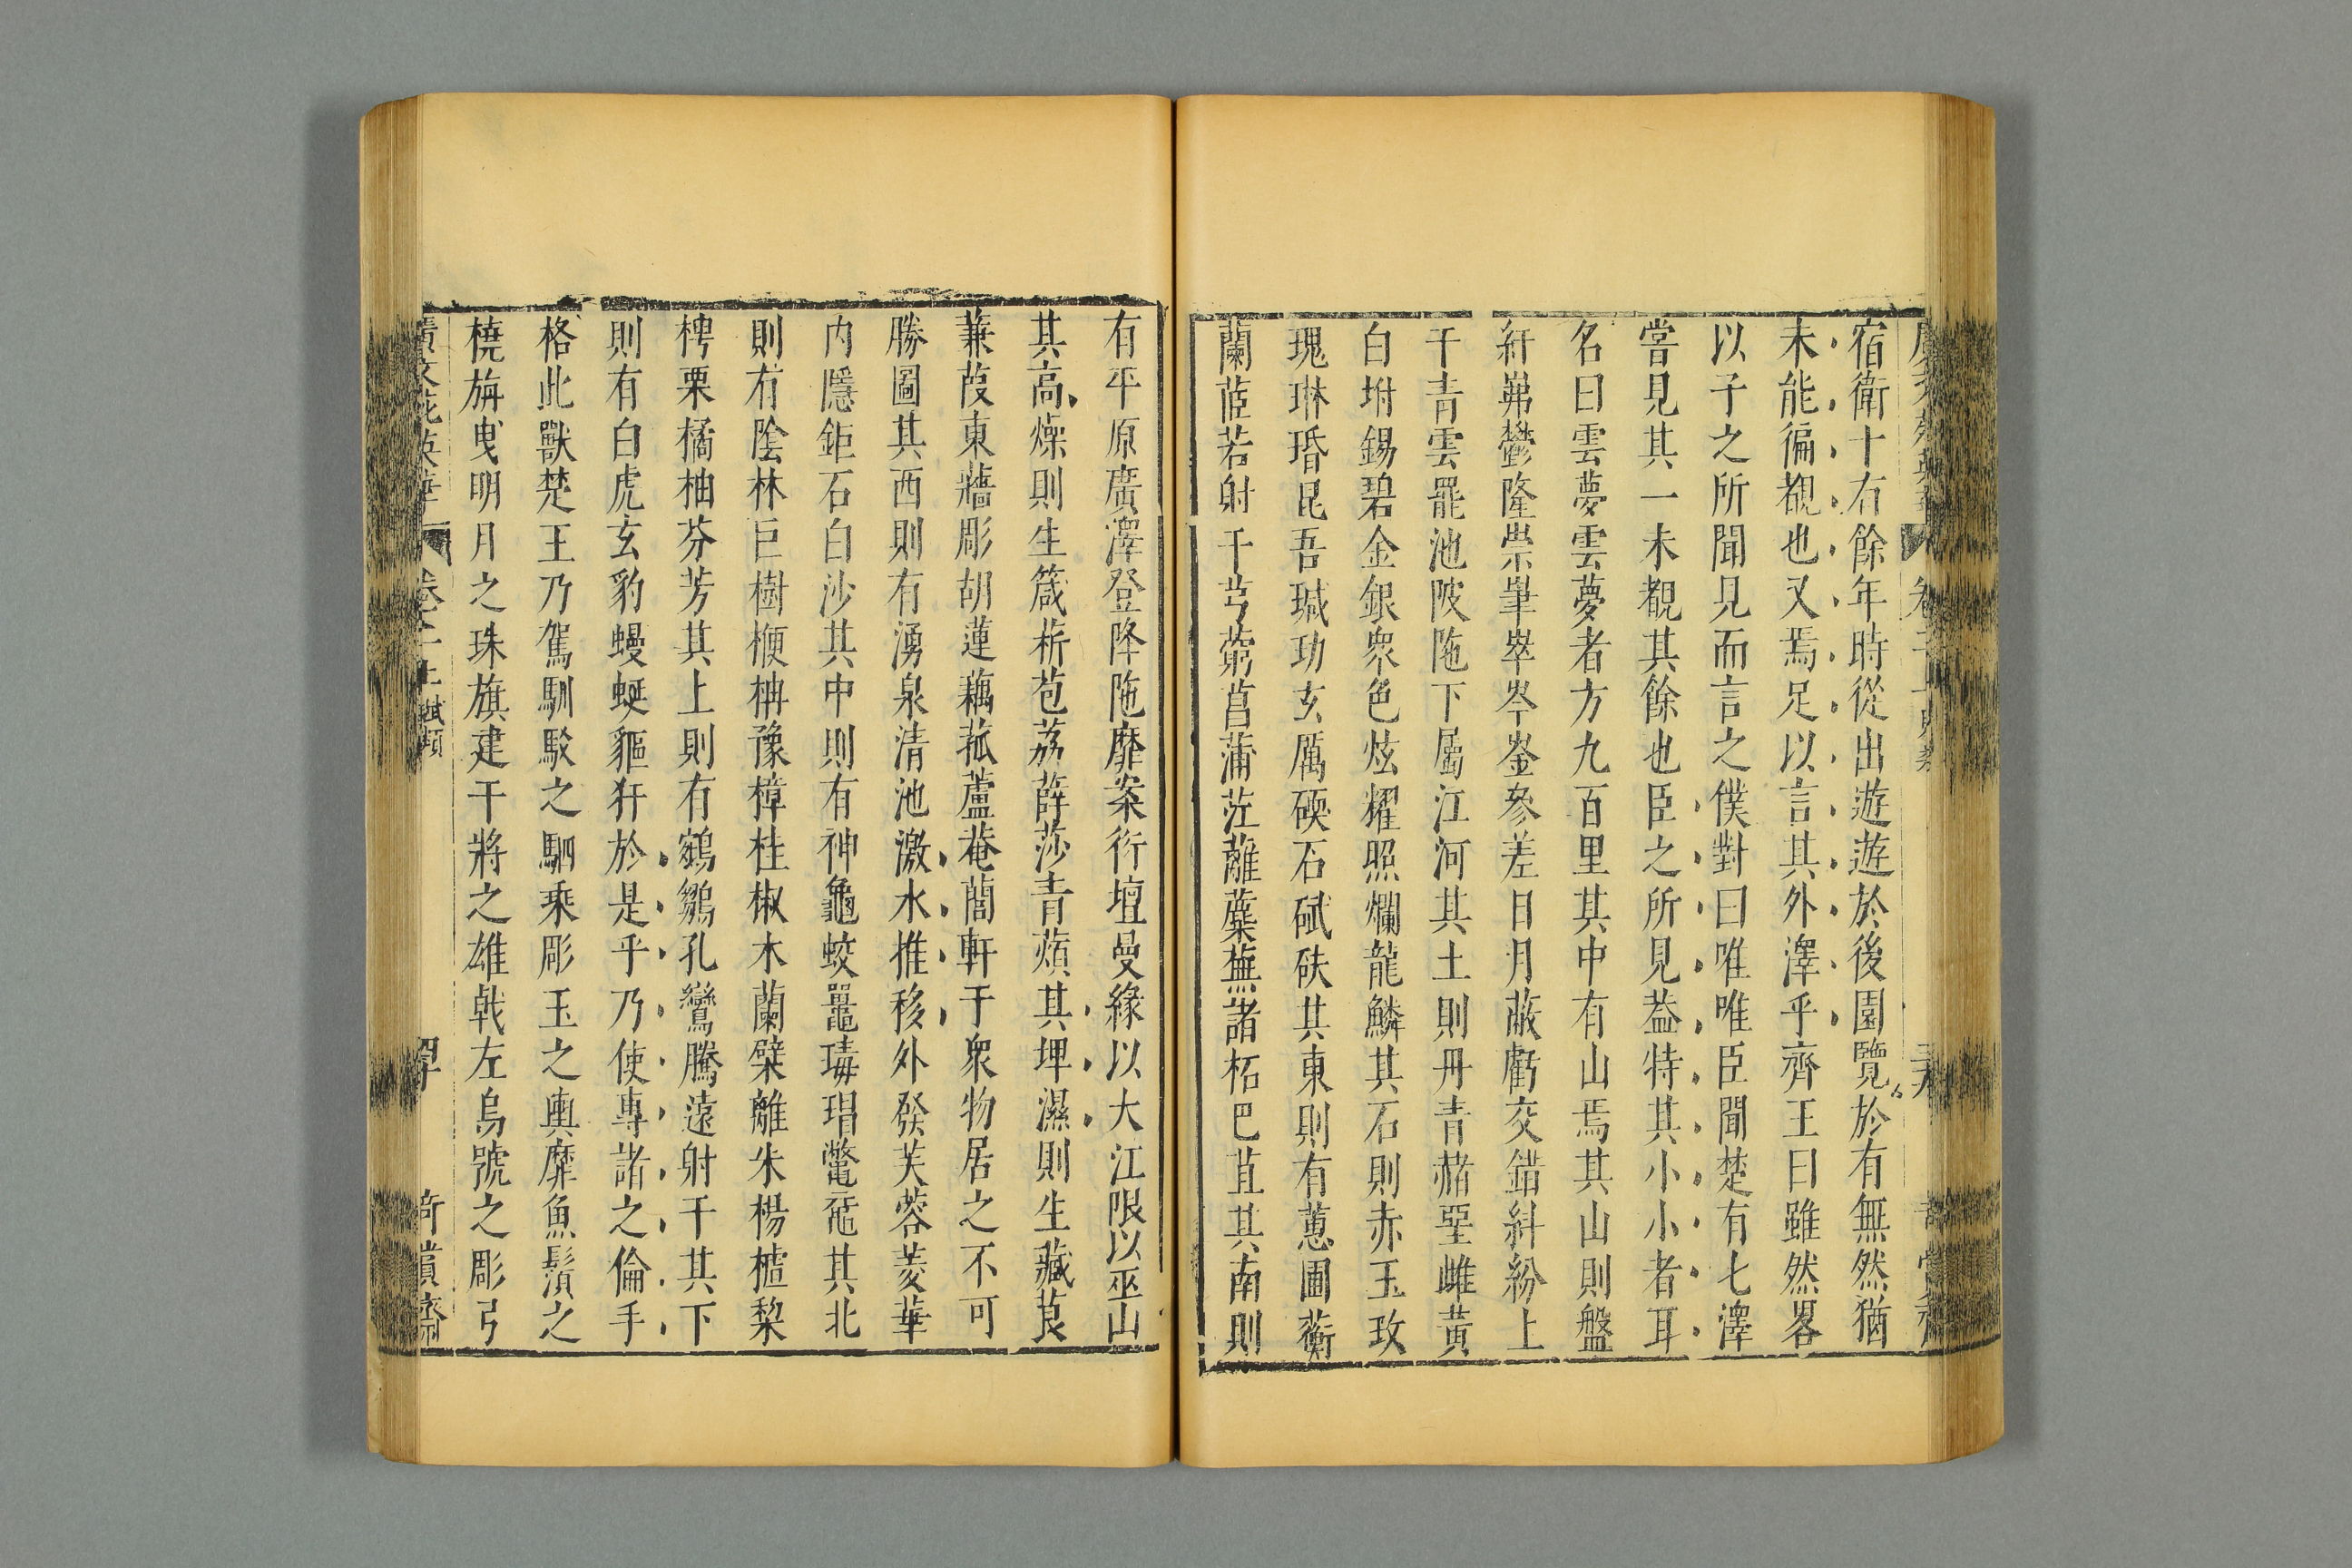 宿衛十有餘年時從出遊遊於後園覽於有無然猶
未能徧覩也又焉足以言其外澤乎齊王曰雖然畧
以子之所聞見而言之僕對曰唯唯臣聞楚有七澤
嘗見其一未覩其餘也臣之所見葢特其小小者耳
名曰雲夢雲夢者方九百里其中有山焉其山則盤
紆岪鬱隆崇嵂崒岑崟參差日月蔽虧交錯糾紛上
干青雲罷池陂陁下屬江河其土則丹青赭堊雌黃
白坿錫碧金銀衆色炫耀照爛龍鱗其石則赤玉玫
瑰琳珉昆吾瑊玏玄厲碝石碔砆其東則有蕙圃蘅
蘭茝若射干芎藭菖蒲茳蘺蘪蕪諸柘巴苴其南則
有平原廣澤登降陁靡案衍壇曼緣以大江限以巫山
其高燥則生葴菥苞荔薜莎青薠其埤濕則生藏莨
蒹葭東蘠彫胡蓮藕菰蘆菴䕡軒于衆物居之不可
勝圖其西則有湧泉清池激水推移外發芙蓉菱華
内隱鉅石白沙其中則有神龜蛟鼉瑇瑁鼈黿其北
則有陰林巨樹楩柟豫樟桂椒木蘭檗離朱楊樝棃
梬栗橘柚芬芳其上則有鵷鶵孔鸞騰遠射干其下
則有白虎玄豹蟃蜒貙犴於是乎乃使專諸之倫手
格此獸楚王乃駕馴駁之駟乘彫玉之輿靡魚鬚之
橈旃曳明月之珠旗建干將之雄戟左烏號之彫弓
廣文苑英華 卷之二上 賦類